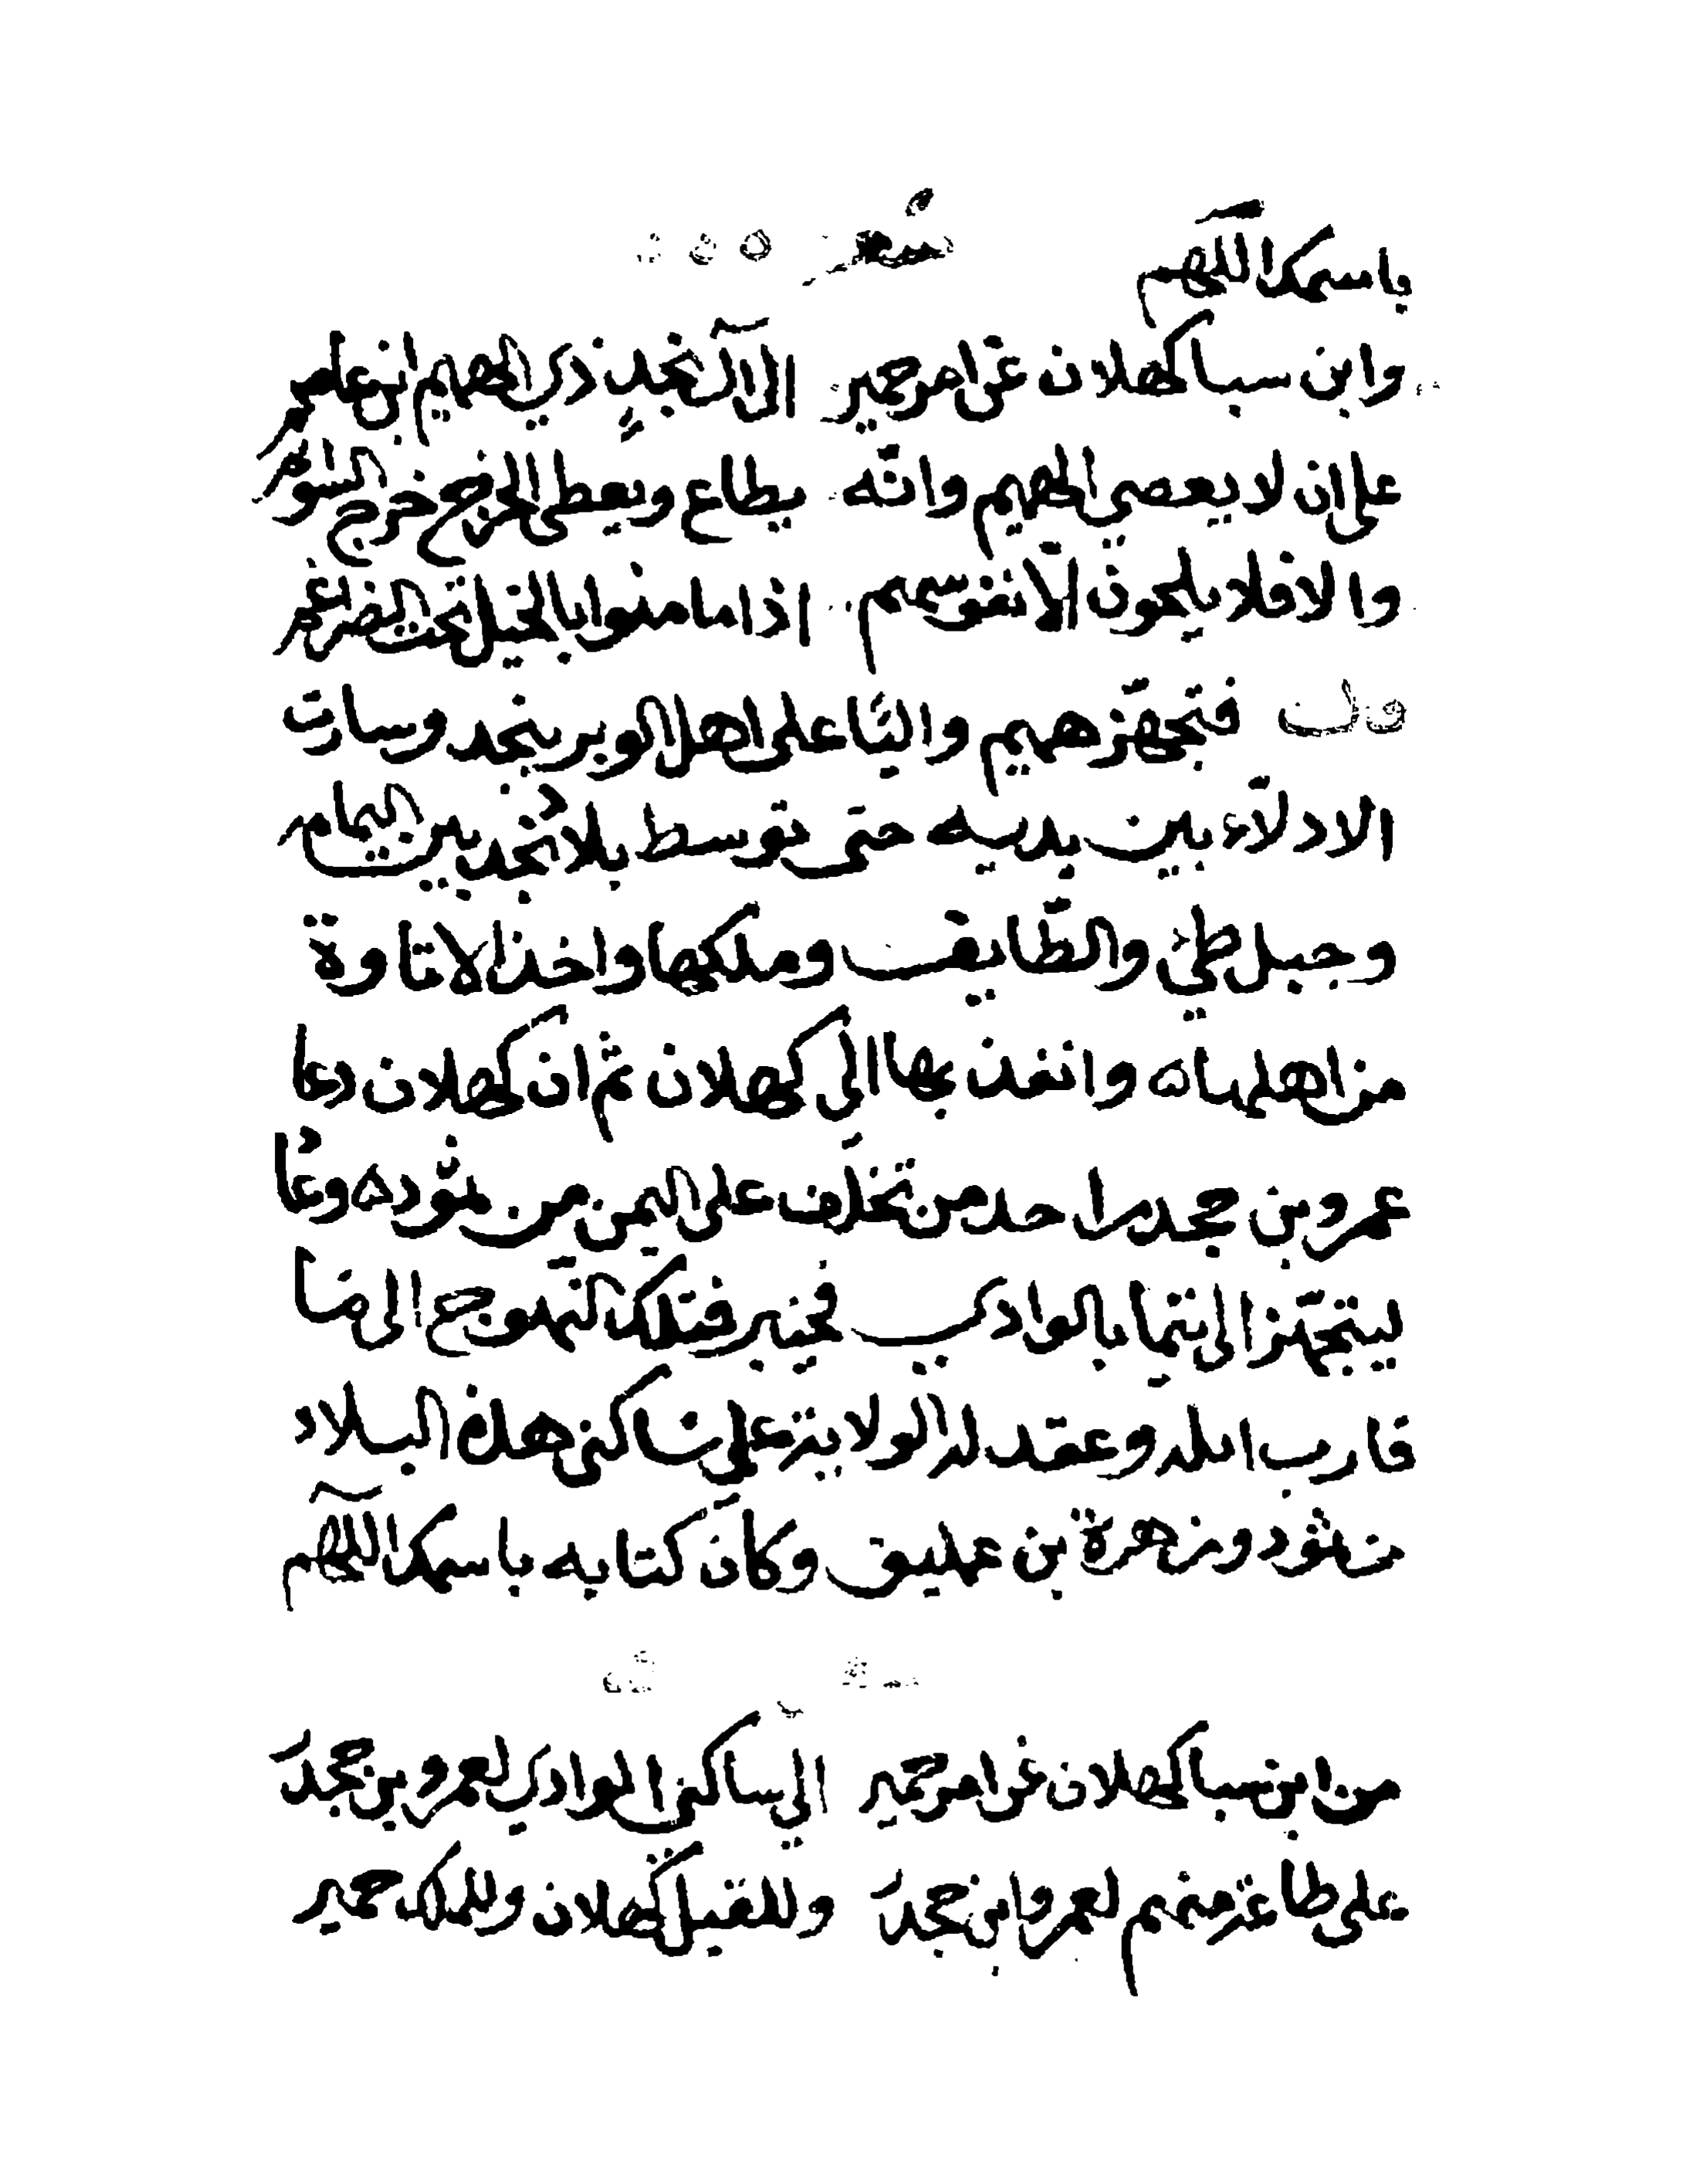 باسمك اللهم شعر
وابن سبا كهلان عن امر حمير الى آل نجد ذي الهميم ابن عاصم
على ان لا يعصي الهميم وانّه يطاع ويعطى الخرج خرج السوائم
والا فلا يلحون الّا نفوسهم اذا ما منوا بالخيل تحت الضراغم
قال فتجهّز هميم واليًا على اهل الوبر بنجد وسارت
الادلّاء بين يديه حتى توسط بلاد نجد بين اليمامه
وجبل طيّ والطّايف وملكها واخذ الاتاوة
من اهلها وانفذ بها الى كهلان ثم ان كهلان دعا
عمرو بن جحدر احد من تخلّف على اليمن من ثمود
ليتجهّز الى تيما بالوادي فخيبر فتلك النهوج الى ما
قارب ايله وعقد له الولاية على ساكني هذه البلاد
من ثمود وزهرة بن عمليق وكان كتابه باسمك اللّهم
من ابن سبا كهلان عن امر حمير الى ساكن الوادي لعمرو بن جحدر
على طاعة منهم لعمرو ابن جحدر وللقيل كهلان وللملك حمير